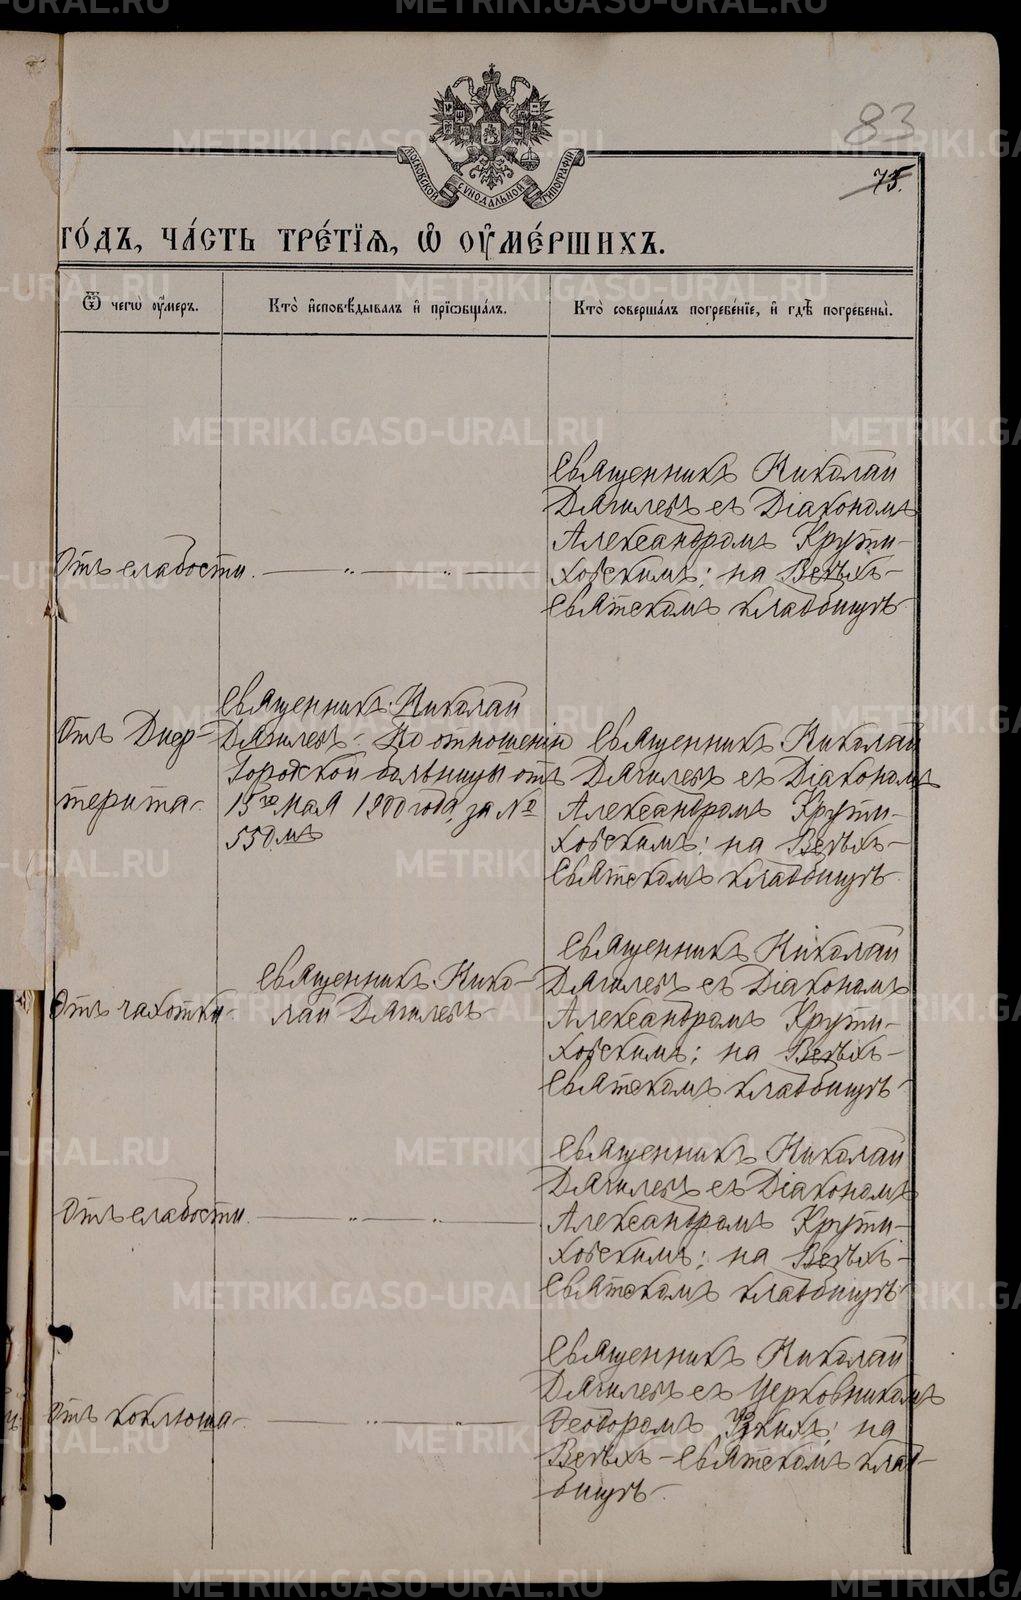 83
75.
МОСКОВСКОЙ СѴНОДАЛЬНОЙ ТИПОГРАФІИ
ГО́ДЪ, ЧА́СТЬ ТРЕ́ТІѦ, Ѡ҆ ОУ҆МЕ́РШИХЪ.
Ѿ чегѡ̀ оу҆́меръ.
Кто̀ и҆сповѣ́дывалъ и҆ прїѡбща́лъ.
Кто̀ соверша́лъ погребе́нїе, и҆ гдѣ̀ погребены̀.
Отъ слабости.
Священникъ Николай
Дягилевъ съ Діакономъ
Александромъ Крути-
ховскимъ; на Всѣхъ-
Святскомъ кладбищѣ.
Отъ Диф-
терита.
Священникъ Николай
Дягилевъ. По отношенію
Городской больницы отъ
15го Мая 1900 года за №
550мъ
Священникъ Николай
Дягилевъ съ Діакономъ
Александромъ Крути-
ховскимъ; на Всѣхъ-
Святскомъ кладбищѣ.
Отъ чахотки.
Священникъ Нико-
лай Дягилевъ.
Священникъ Николай
Дягилевъ съ Діакономъ
Александромъ Крути-
ховскимъ; на Всѣхъ-
Святскомъ кладбищѣ.
Отъ слабости.
Священникъ Николай
Дягилевъ съ Діакономъ
Александромъ Крути-
ховскимъ; на Всѣхъ-
Святскомъ кладбищѣ.
Отъ коклюша.
Священникъ Николай
Дягилевъ съ Церковникомъ
Ѳеодоромъ на
Всѣхъ-Святскомъ клад-
бищѣ.
METRIKI.GASO-URAL.RU